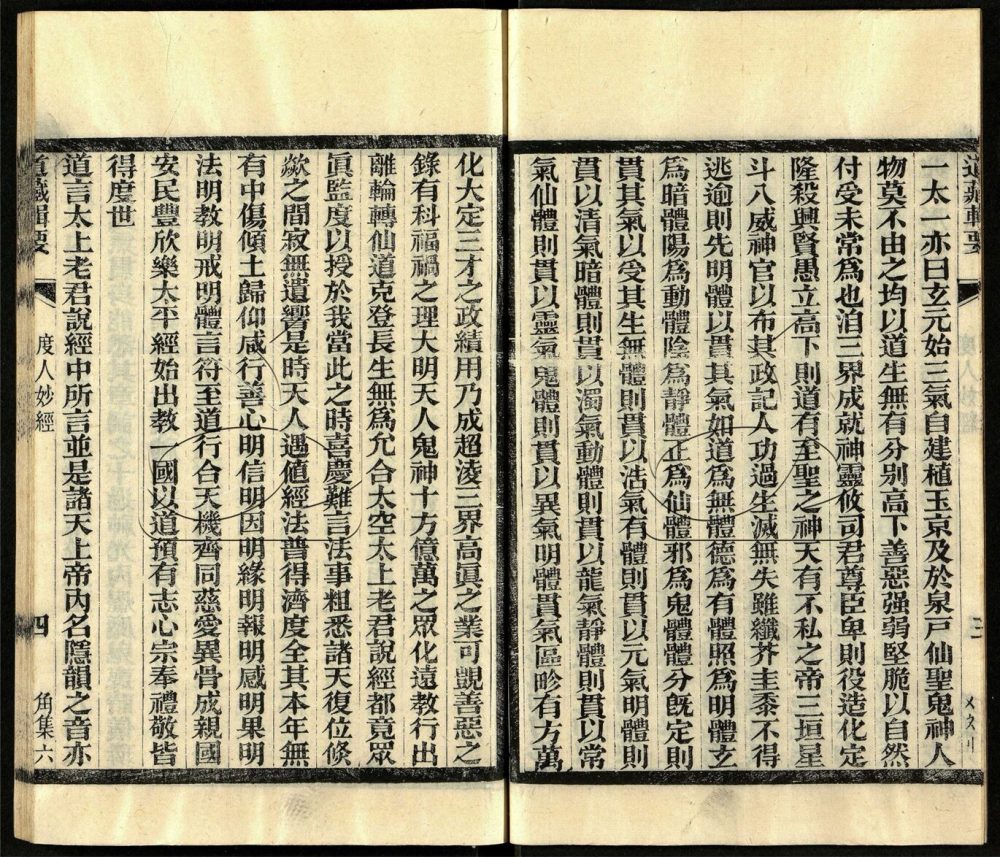 道藏輯要
一太一亦曰玄元始三氣自建植玉京及於泉戸仙聖鬼神人
物莫不由之均以道生無有分別高下善惡强弱堅脆以自然
付受未常爲也洎三界成就神靈攸司君尊臣卑則役造化定
隆殺興賢愚立高下則道有至聖之神天有不私之帝三垣星
斗八威神官以布其政記人功過生滅無失雖纖芥圭黍不得
逃逾則先明體以貫其氣如道爲無體德爲有體照爲明體玄
爲暗體陽爲動體陰爲靜體正爲仙體邪爲鬼體體分旣定則
貫其氣以受其生無體則貫以浩氣有體則貫以元氣明體則
貫以清氣暗體則貫以濁氣動體則貫以龍氣靜體則貫以常
氣仙體則貫以靈氣鬼體則貫以異氣明體貫氣區畛有方萬
化大定三才之政績用乃成超淩三界高眞之業可覬善惡之
錄有科福禍之理大明天人鬼神十方億萬之眾化遠教行出
離輪轉仙道克登長生無爲允合太空太上老君說經都竟眾
眞監度以授於我當此之時喜慶難言法事粗悉諸天復位倏
歘之間寂無遺響是時天人遇値經法普得濟度全其本年無
有中傷傾土歸仰咸行善心明信明因明緣明報明感明果明
法明教明戒明體言符至道行合天機齊同慈愛異骨成親國
安民豐欣樂太平經始出教一國以道預有志心宗奉禮敬皆
得度世
道言太上老君說經中所言並是諸天上帝內名隱韻之音亦
道藏輯要
度人妙經
四
角集六